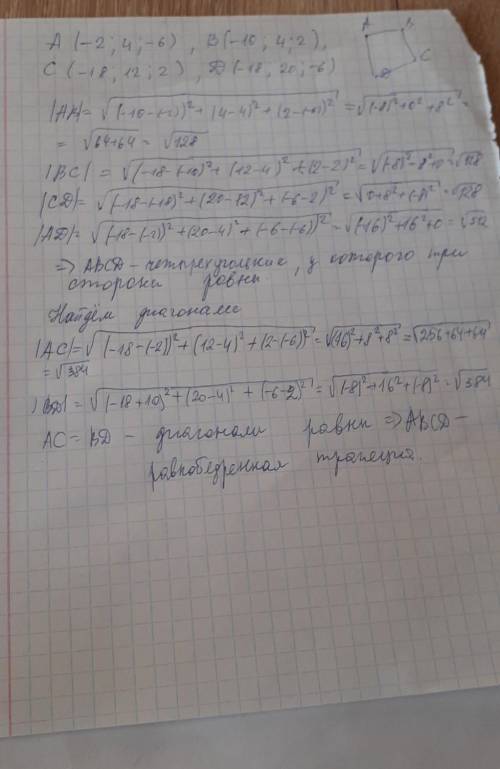 A (-2; 4; -6), B(-10; 4; 2),
C (-18; 12; 2), D(-18; 20; -6)
A B
C
D
|AB| = √((-10-(-2))² + (4-4)² + (2-(-6))²) = √((-8)² + 0² + 8²) =
= √64+64 = √128
|BC| = √((-18-(-10))² + (12-4)² + (2-2)²) = √((-8)² + 8² + 0) = √128
|CD| = √((-18-(-18))² + (20-12)² + (-6-2)²) = √(0+8²+(-8)²) = √128
|AD| = √((-18-(-2))² + (20-4)² + (-6-(-6))²) = √((-16)² + 16² + 0) = √512
=> ABCD - четырехугольник, у которого три
стороны равны
Найдём диагонали
|AC| = √((-18-(-2))² + (12-4)² + (2-(-6))²) = √((16)² + 8² + 8²) = √(256+64+64)
= √384
|BD| = √((-18+10)² + (20-4)² + (-6-2)²) = √((-8)² + 16² + (-8)²) = √384
AC = BD - диагонали равны => ABCD -
равнобедренная трапеция.